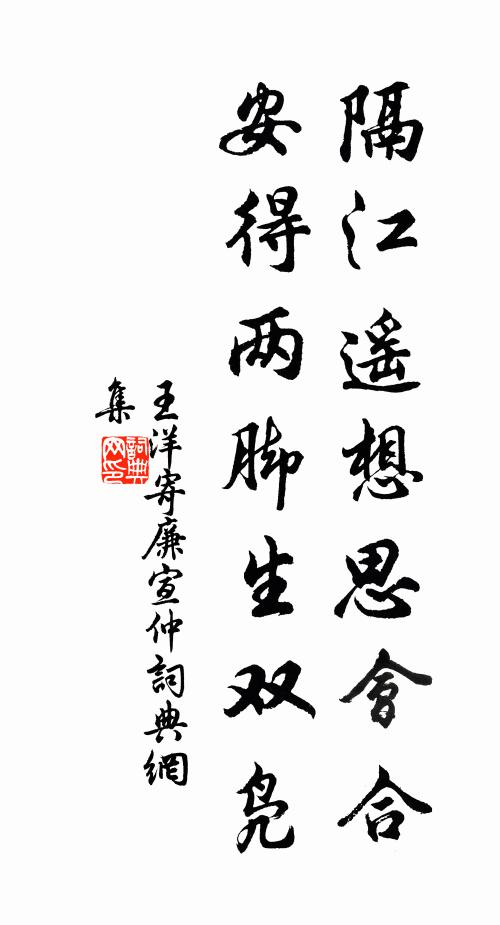 隔江遥想思會合
安得两脚生双凫
王洋寄廉宣仲詞典網
集
詞典网印